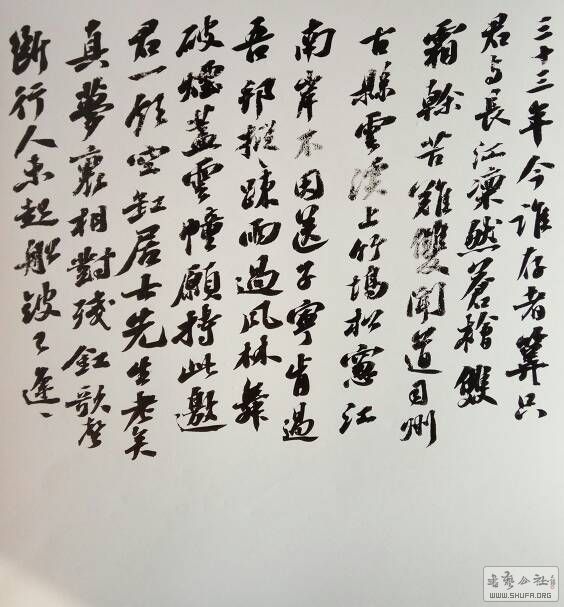 三十三年今誰存者筭只
君与長江凛然蒼檜雙
霜幹苦難雙聞道司州
古縣雲溪上竹塢松窓江
南岸不因送子寧肯過
吾邦摐疎雨過風林舞
破煙蓋雲幢願持此邀
君一飲空缸居士先生老矣
真夢裏相對残釭歌聲
斷行人未起船皷已逢〻
書藝公社
WWW.SHUFA.ORG